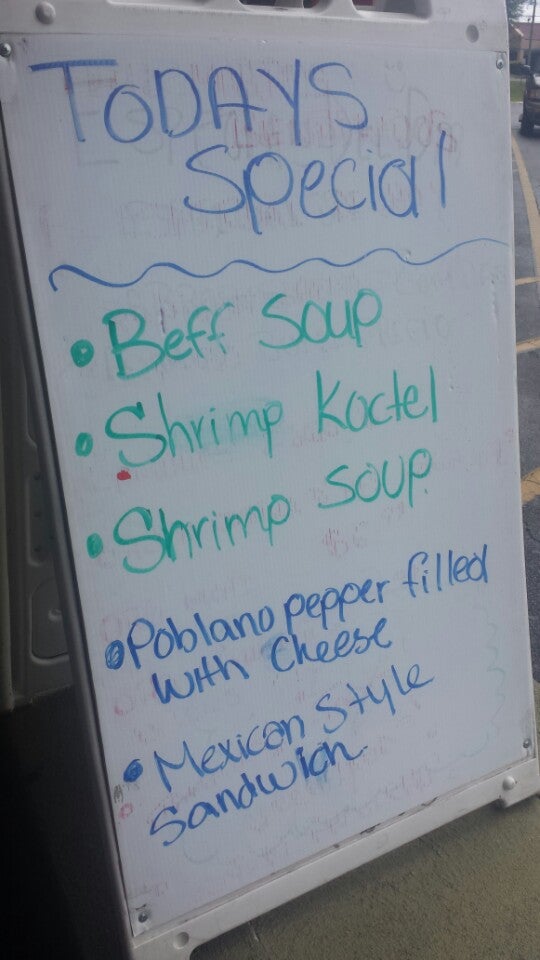 TODAYS
Special
• Beff Soup
• Shrimp Koctel
• Shrimp Soup
• Poblano pepper filled
with Cheese
• Mexican Style
Sandwich